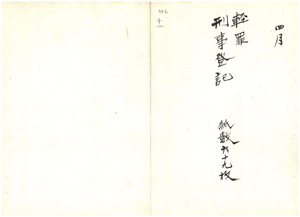 四月
軽罪
刑事登記
紙数九十九枚